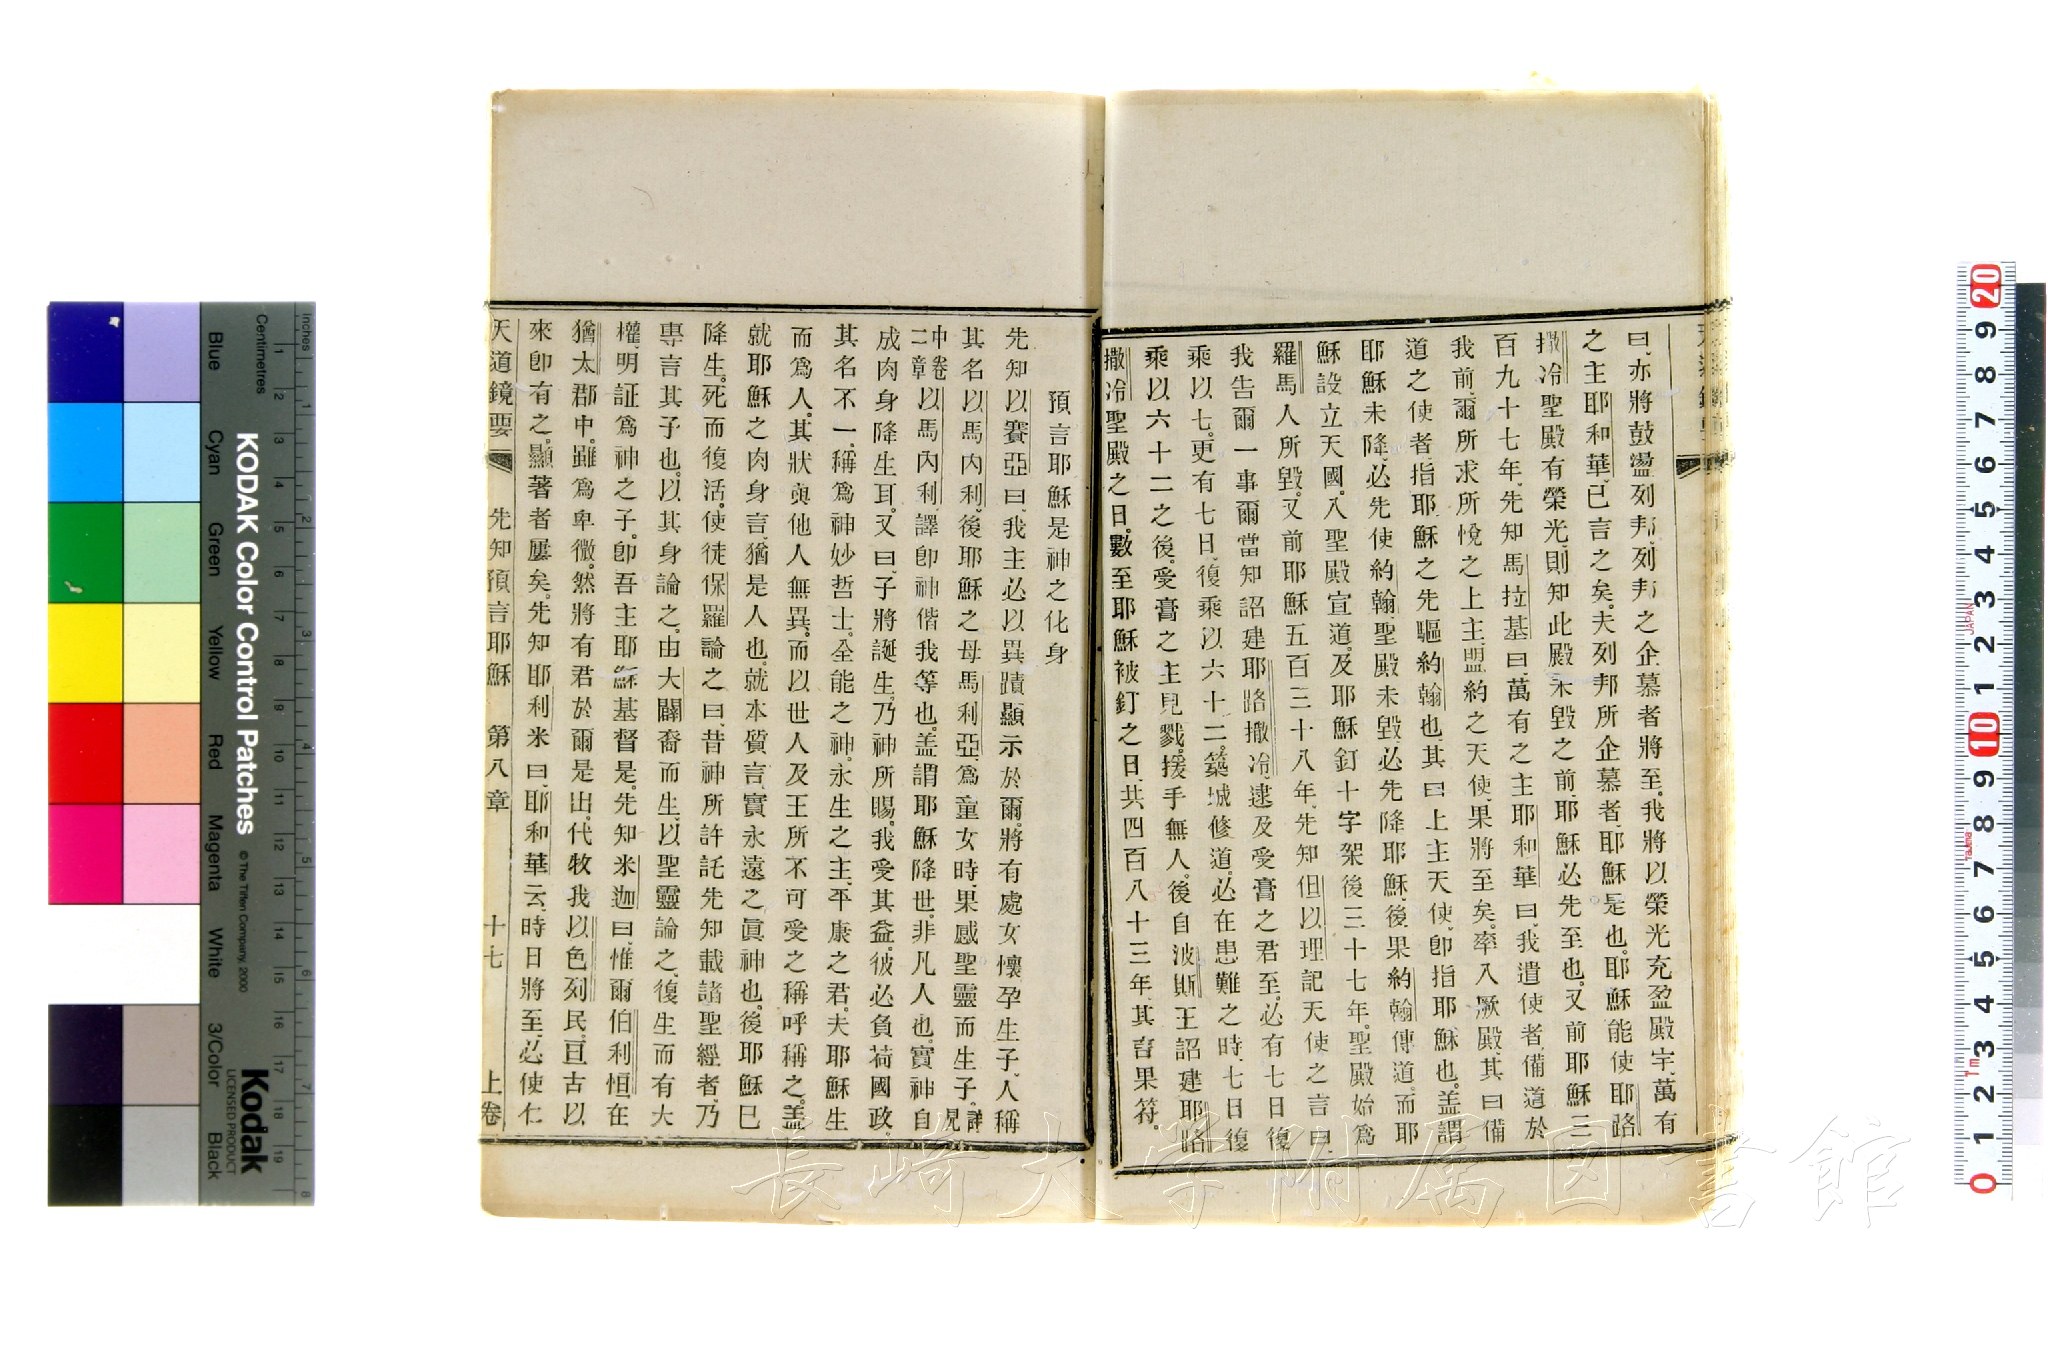 曰、亦將鼓盪列邦、列邦之企慕者將至。我將以榮光充盈殿宇、萬有
之主耶和華、已言之矣。夫列邦所企慕者耶穌是也。耶穌能使耶路
撒冷聖殿有榮光、則知此殿未毀之前、耶穌必先至也。又前耶穌三
百九十七年、先知馬拉基曰、萬有之主耶和華曰、我遣使者、備道於
我前、爾所求所悅之上主、盟約之天使、果將至矣。率入厥殿、其曰備
道之使者、指耶穌之先驅約翰也、其曰上主天使、卽指耶穌也。盖謂
耶穌未降、必先使約翰、聖殿未毀、必先降耶穌、後果約翰傳道、而耶
穌設立天國。入聖殿宣道。及耶穌釘十字架後三十七年。聖殿始爲
羅馬人所毀。又前耶穌五百三十八年、先知但以理記天使之言曰、
我告爾一事、爾當知詔建耶路撒冷、逮及受膏之君至、必有七日復
乘以七。更有七日、復乘以六十二。築城修道、必在患難之時、七日復
乘以六十二之後。受膏之主見戮。援手無人。後自波斯王詔建耶路
撒冷聖殿之日。數至耶穌被釘之日、共四百八十三年、其言果符。
預言耶穌是神之化身
先知以賽亞曰、我主必以異蹟顯示於爾、將有處女懷孕生子、人稱
其名以馬內利、後耶穌之母馬利亞、爲童女時、果感聖靈而生子、詳見
中卷二章以馬內利、譯卽神偕我等也。盖謂耶穌降世、非凡人也。實神自
成肉身降生耳。又曰、子將誕生、乃神所賜、我受其益。彼必負荷國政。
其名不一、稱爲神妙哲士、全能之神、永生之主、平康之君。夫耶穌生
而爲人、其狀與他人無異、而以世人及王所不可受之稱呼稱之。盖
就耶穌之肉身言、猶是人也、就本質言、實永遠之眞神也。後耶穌已
降生、死而復活、使徒保羅論之曰、昔神所許託先知載諸聖經者、乃
專言其子也、以其身論之、由大闢裔而生、以聖靈論之、復生而有大
權、明証爲神之子、卽吾主耶穌基督是。先知米迦曰、惟爾伯利恒、在
猶太郡中、雖爲卑微。然將有君於爾是出、代牧我以色列民、亘古以
來卽有之、顯著者屢矣。先知耶利米曰、耶和華云、時日將至、必使仁
天道鏡要　先知預言耶穌　第八章　十七　上卷
長崎大学附属図書館
KODAK Color Control Patches
© The Tiffen Company, 2000
Kodak
LICENSED PRODUCT
Inches
Centimetres
Blue
Cyan
Green
Yellow
Red
Magenta
White
3/Color
Black
JAPAN